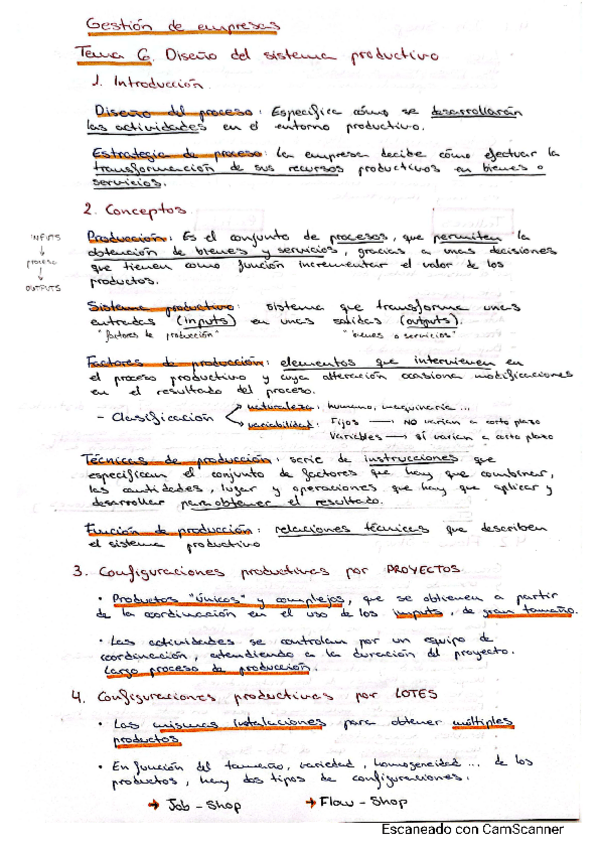 Gestión de empresas
Tema 6. Diseño del sistema productivo
1. Introducción.
Diseño del proceso: Especifica cómo se desarrollarán
las actividades en el entorno productivo.
Estrategia de proceso: La empresa decide cómo efectuar la
transformación de sus recursos productivos en bienes o
servicios.
2. Conceptos
INPUTS
↓
proceso
↓
OUTPUTS
Producción: Es el conjunto de procesos, que permiten la
obtención de bienes y servicios, gracias a unas decisiones
que tienen como función incrementar el valor de los
productos.
Sistema productivo: sistema que transforma unas
entradas (inputs) en unas salidas (outputs).
"factores de producción" "bienes o servicios"
Factores de producción: elementos que intervienen en
el proceso productivo y cuya alteración ocasiona modificaciones
en el resultado del proceso.
- Clasificación → naturaleza: humano, maquinaria ...
→ variabilidad: Fijos → NO varían a corto plazo
Variables → SÍ varían a corto plazo
Técnicas de producción: serie de instrucciones que
especifican el conjunto de factores que hay que combinar,
las cantidades, lugar y operaciones que hay que aplicar y
desarrollar para obtener el resultado.
Función de producción: relaciones técnicas que describen
el sistema productivo
3. Configuraciones productivas por PROYECTOS
• Productos "únicos" y complejos, que se obtienen a partir
de la coordinación en el uso de los inputs, de gran tamaño.
• Las actividades se controlan por un equipo de
coordinación, atendiendo a la duración del proyecto.
Largo proceso de producción.
4. Configuraciones productivas por LOTES
• Las mismas instalaciones para obtener múltiples
productos
• En función del tamaño, variedad, homogeneidad ... de los
productos, hay dos tipos de configuraciones.
→ Job-Shop → Flow-Shop
Escaneado con CamScanner